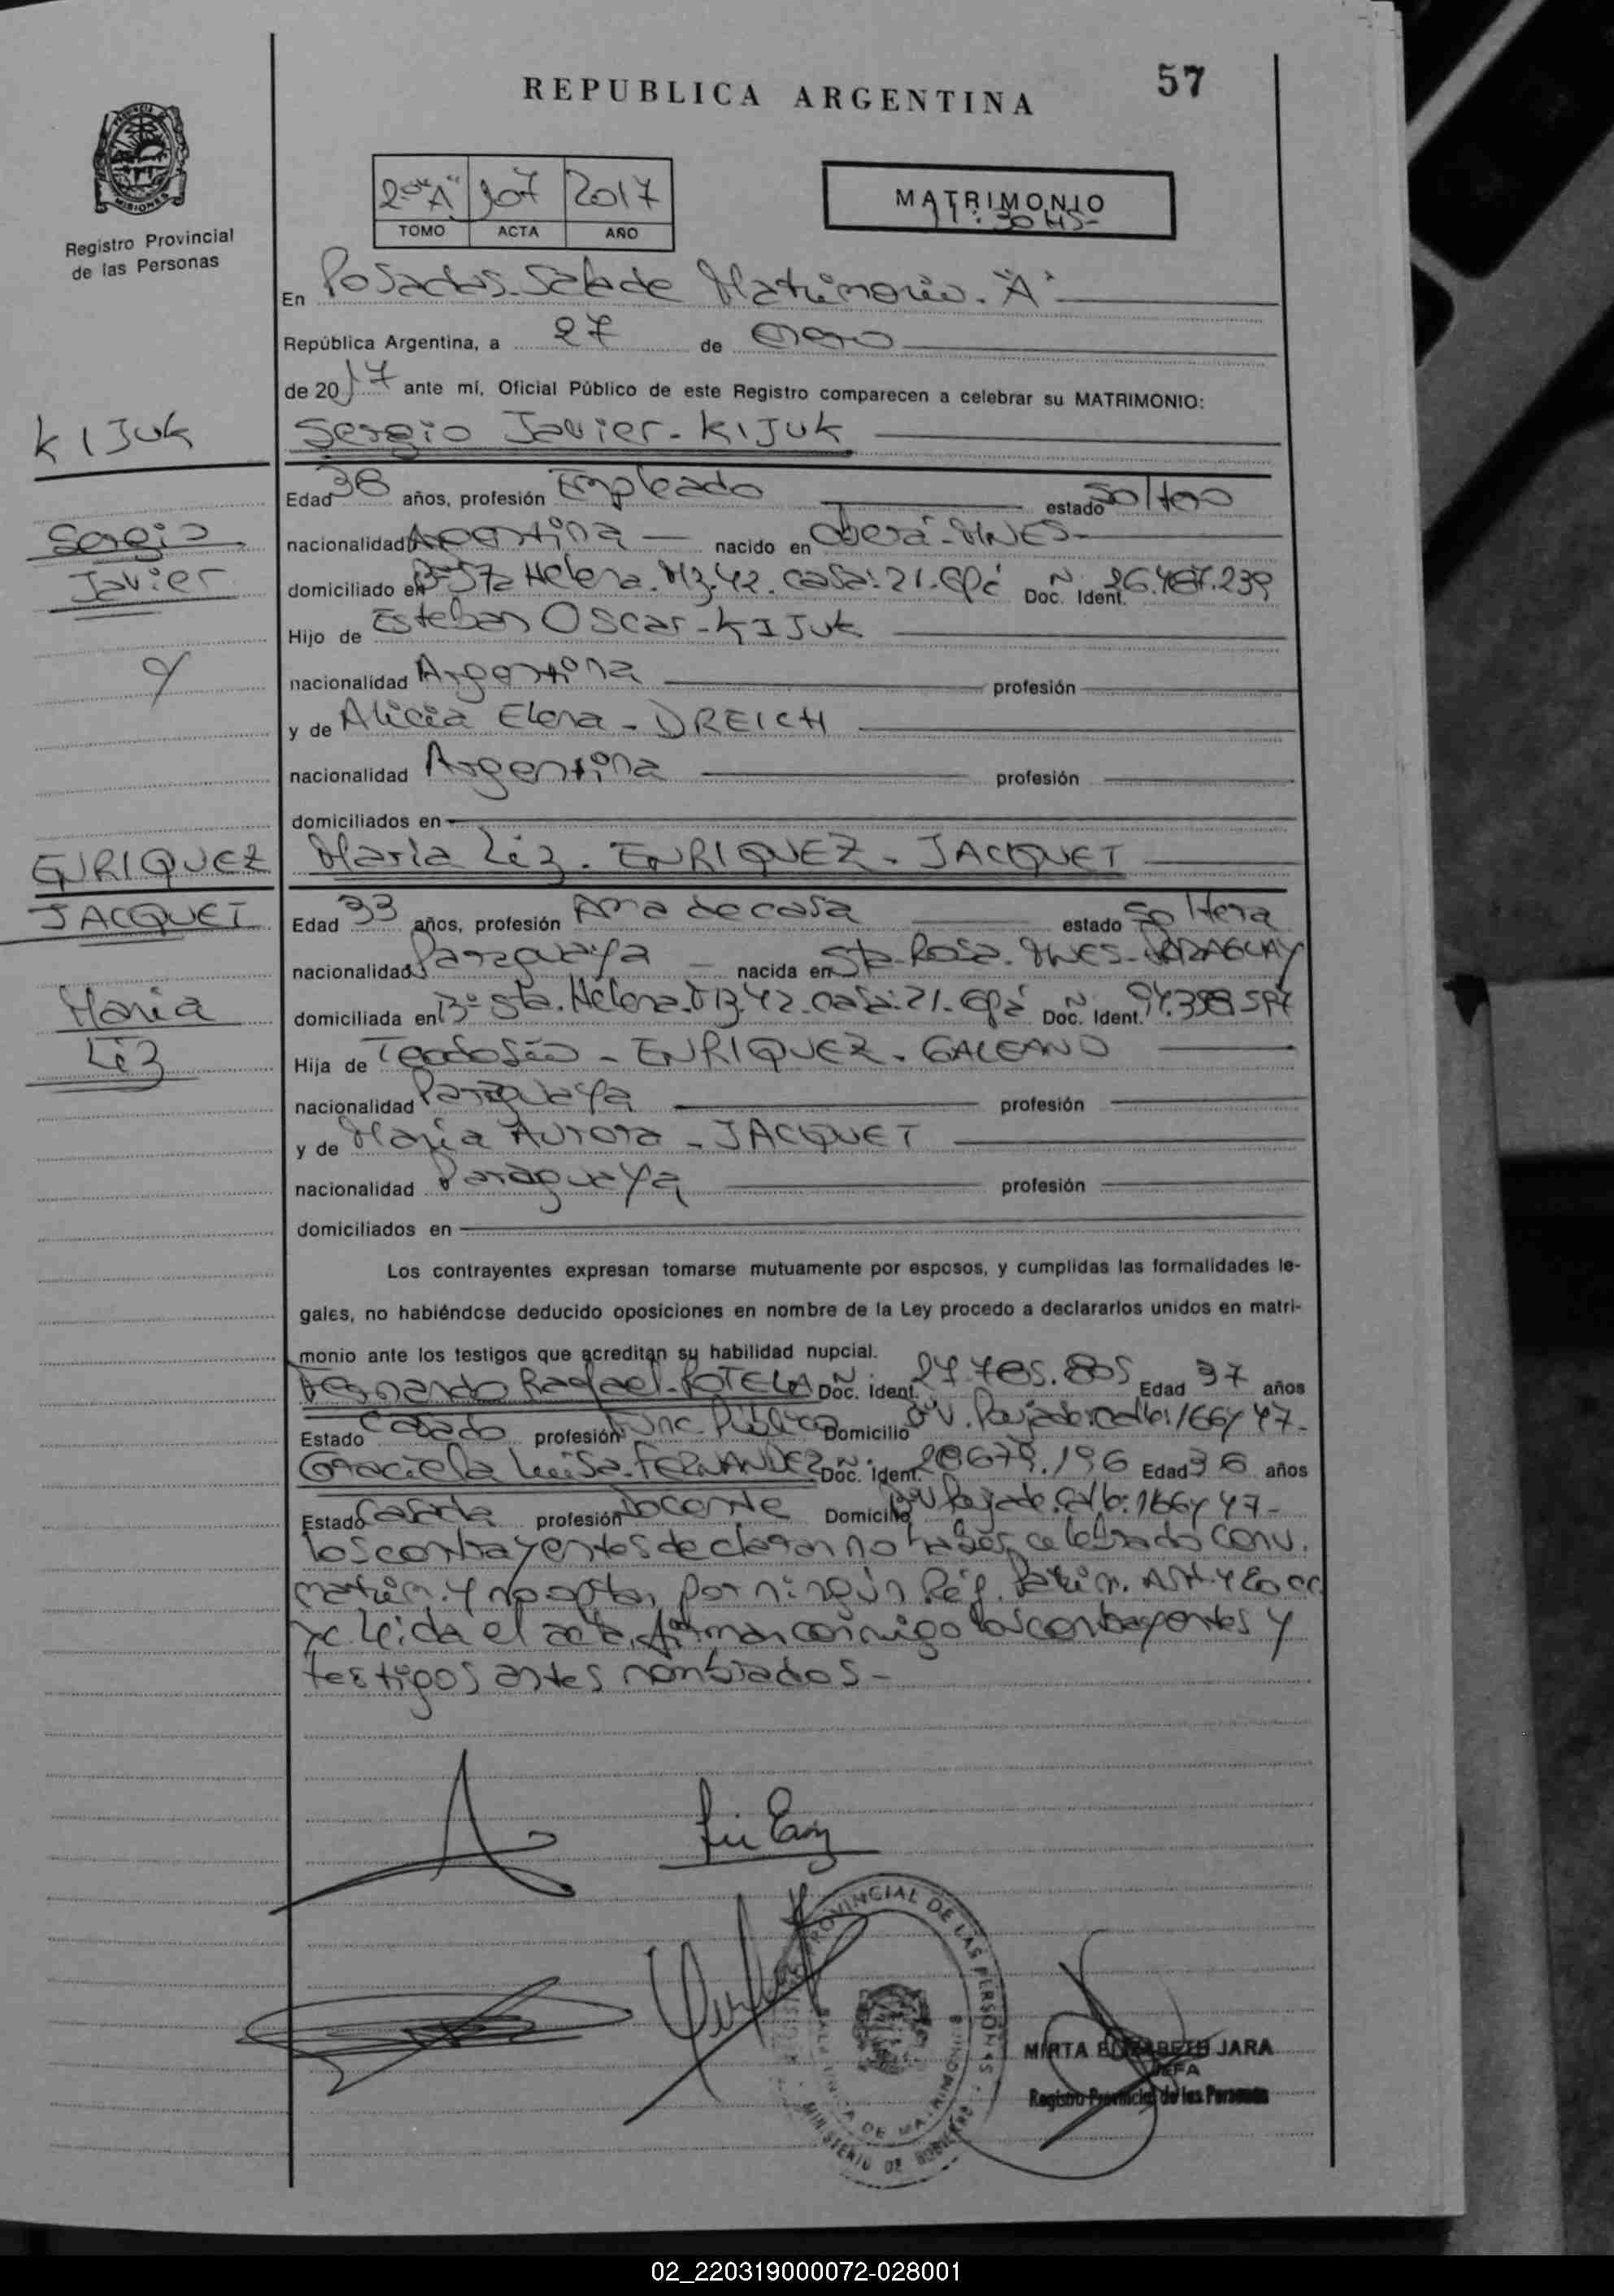 REPUBLICA ARGENTINA
57
MISIONES
Registro Provincial
de las Personas
2º "A" 107 2017
TOMO ACTA AÑO
MATRIMONIO
11:30 HS-
En Posadas. Sala de Matrimonio. "A"
República Argentina, a 27 de enero
de 2017 ante mí, Oficial Público de este Registro comparecen a celebrar su MATRIMONIO:
KIJUK
Sergio Javier - KIJUK
Edad 38 años, profesión Empleado estado Soltero
Sergio
nacionalidad Argentina nacido en Oberá - MNES-
Javier
domiciliado en Bº Sta Helena. Mz. 42. casa: 21. Gpá Doc. Ident. Nº 26.487.239
Hijo de Esteban Oscar - KIJUK
y
nacionalidad Argentina profesión
y de Alicia Elena - DREICH
nacionalidad Argentina profesión
domiciliados en
ENRIQUEZ
Maria Liz - ENRIQUEZ - JACQUET
JACQUET
Edad 33 años, profesión Ama de casa estado Soltera
nacionalidad Paraguaya nacida en Sta. Rosa. MNES - PARAGUAY
Maria
domiciliada en Bº Sta. Helena. Mz. 42. casa: 21. Gpá Doc. Ident. Nº
Liz
Hija de Teodosio - ENRIQUEZ - GALEANO
nacionalidad Paraguaya profesión
y de Maria Aurora - JACQUET
nacionalidad Paraguaya profesión
domiciliados en
Los contrayentes expresan tomarse mutuamente por esposos, y cumplidas las formalidades le-
gales, no habiéndose deducido oposiciones en nombre de la Ley procedo a declararlos unidos en matri-
monio ante los testigos que acreditan su habilidad nupcial.
Fernando Rafael - SOTELA Doc. Ident. Nº 27.785.805 Edad 37 años
Estado Casado profesión Func. Público Domicilio
Graciela Luisa - FERNANDEZ Doc. Ident. Nº 28679.196 Edad 36 años
Estado Casada profesión Docente Domicilio
los contrayentes declaran no haber celebrado conv.
matrim. y no optan por ningún Rég. Patrim.
leida el acta, firman conmigo los contrayentes y
testigos antes nombrados-
REGISTRO PROVINCIAL DE LAS PERSONAS
MINISTERIO DE GOBIERNO
MIRTA ELIZABETH JARA
JEFA
Registro Provincial de las Personas
02_220319000072-028001